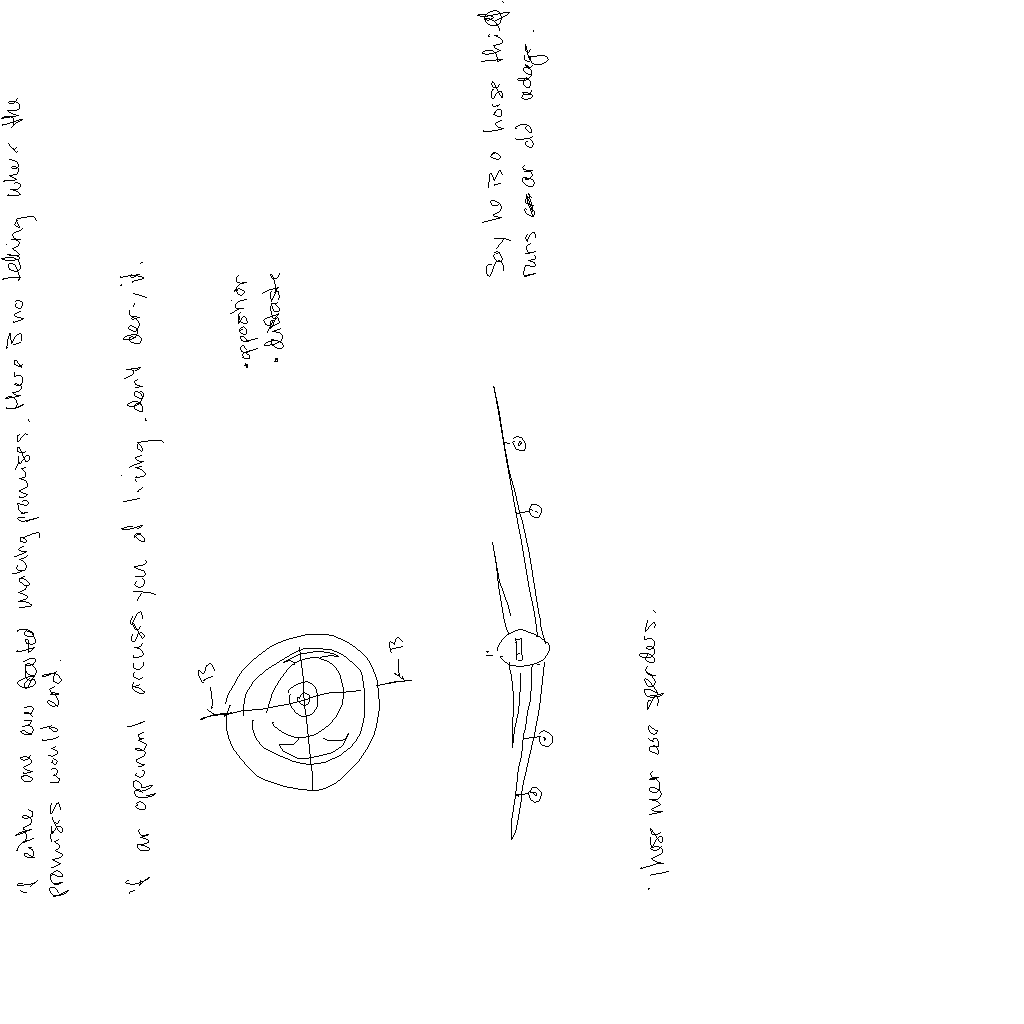 if either one ever started making promises, there is no telling where the
promises would end.
if an opponent accuses you of lying, don't deny it.
B
B
• opposition
Say he is a horse thief.
runs an old adage.
• These men are spenders.